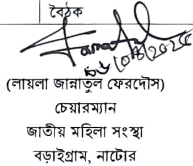 বৈঠক
(লায়লা জান্নাতুল ফেরদৌস)
চেয়ারম্যান
জাতীয় মহিলা সংস্থা
বড়াইগ্রাম, নাটোর